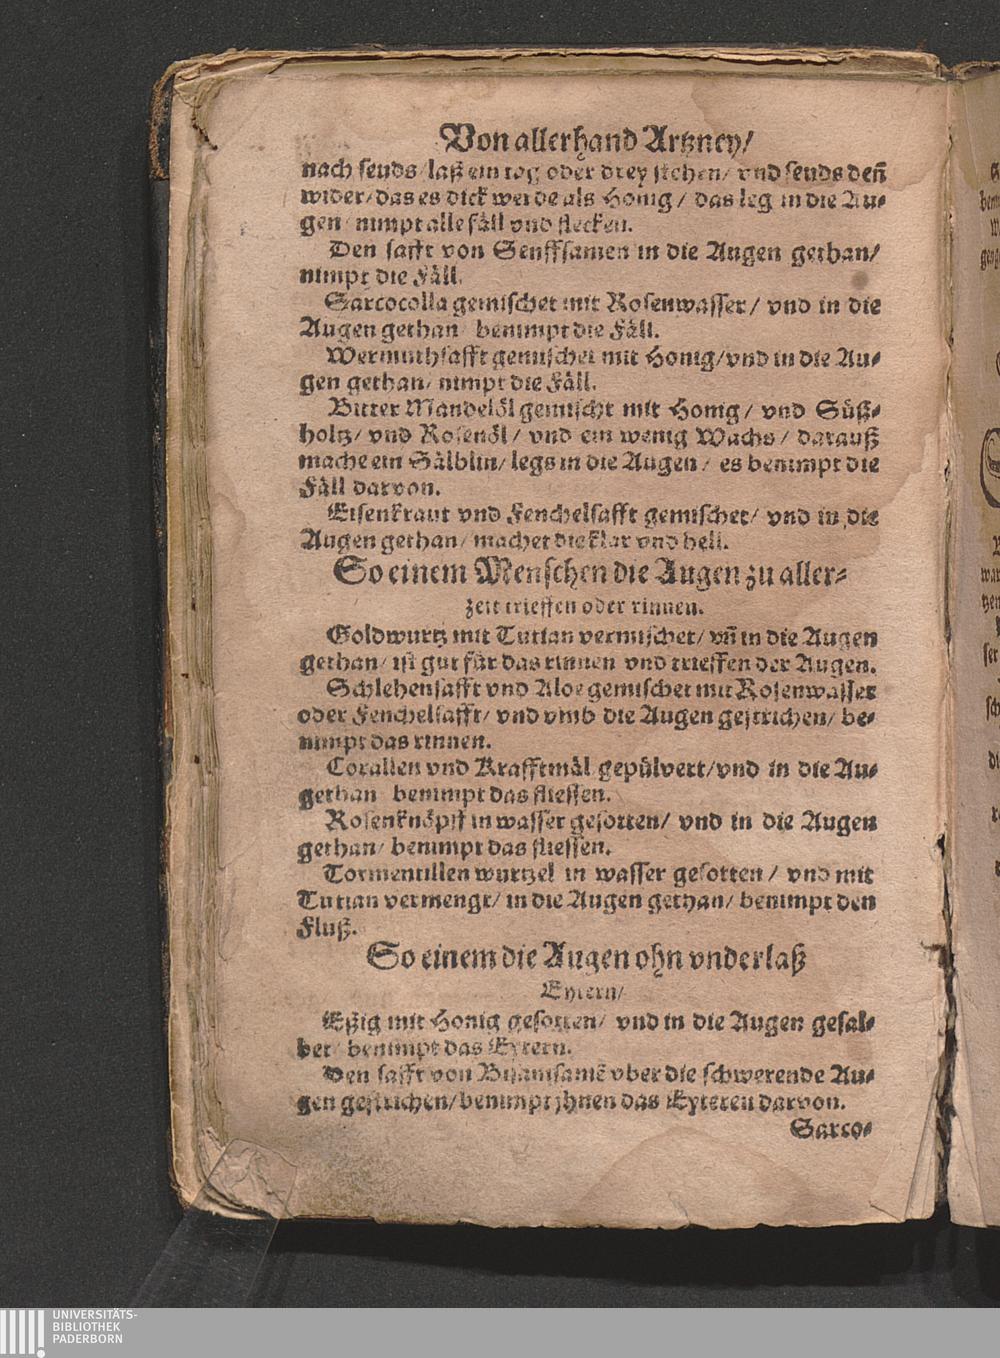 Von allerhand Artzney/
nach seuds/ laß ein tag oder drey stehen/ vnd seuds deñ
wider/ das es dick werde als Honig/ das leg in die Au-
gen/ nimpt alle fäll vnd flecken.
Den safft von Senffsamen in die Augen gethan/
nimpt die Fäll.
Sarcocolla gemischet mit Rosenwasser/ vnd in die
Augen gethan/ benimpt die Fäll.
Wermuthsafft gemischet mit Honig/ vnd in die Au-
gen gethan/ nimpt die Fäll.
Bitter Mandelöl gemischt mit Honig/ vnd Süß-
holtz/ vnd Rosenöl/ vnd ein wenig Wachs/ darauß
mache ein Sälblin/ legs in die Augen/ es benimpt die
Fäll darvon.
Eisenkraut vnd Fenchelsafft gemischet/ vnd in die
Augen gethan/ machet die klar vnd hell.
So einem Menschen die Augen zu aller-
zeit trieffen oder rinnen.
Goldwurtz mit Tutian vermischet/ vñ in die Augen
gethan/ ist gut für das rinnen vnd trieffen der Augen.
Schlehensafft vnd Aloe gemischet mit Rosenwasser
oder Fenchelsafft/ vnd vmb die Augen gestrichen/ be-
nimpt das rinnen.
Corallen vnd Krafftmäl gepülvert/ vnd in die Au-
gethan benimpt das fliessen.
Rosenknöpff in wasser gesotten/ vnd in die Augen
gethan/ benimpt das fliessen.
Tormentillen wurtzel in wasser gesotten/ vnd mit
Tutian vermengt/ in die Augen gethan/ benimpt den
Fluß.
So einem die Augen ohn vnderlaß
Eytern/
Eßig mit Honig gesotten/ vnd in die Augen gesal-
bet/ benimpt das Eytern.
Den safft von Bisamsamẽ vber die schwerende Au-
gen gestrichen/ benimpt jhnen das Eyteren darvon.
Sarco-
UNIVERSITÄTS-
BIBLIOTHEK
PADERBORN